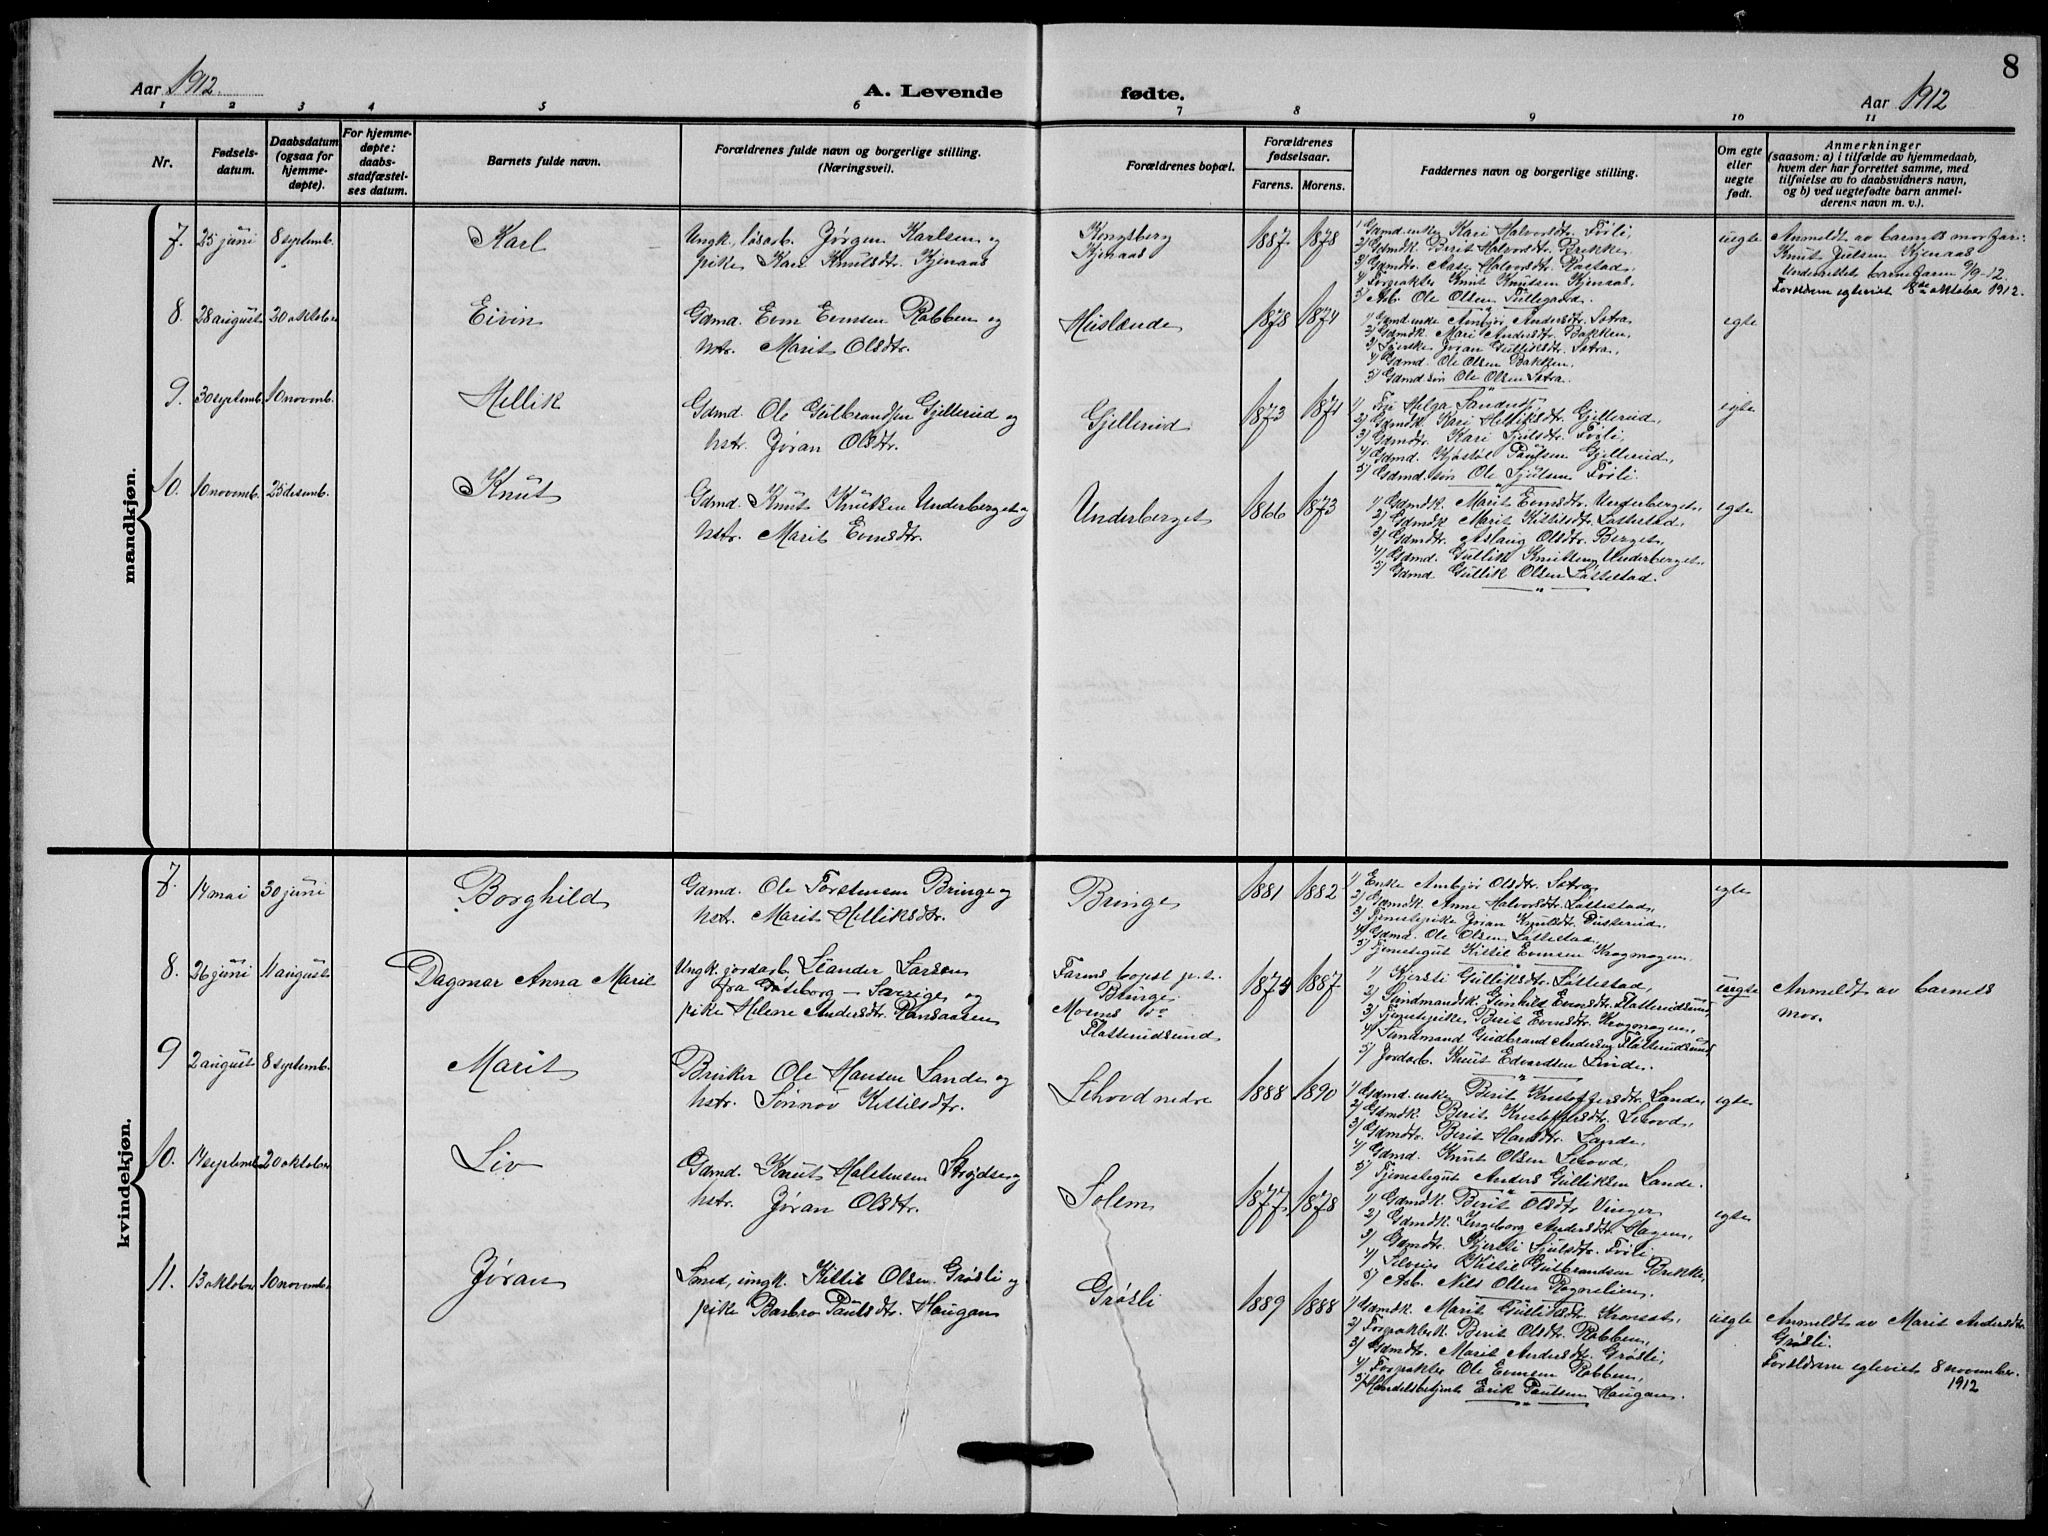 8
Aar 1912.
A. Levende fødte.
Aar 1912
1 2 3 4 5 6 7 8 9 10 11
Nr.
Fødsels-
datum.
Daabsdatum
(ogsaa for
hjemme-
døpte).
For hjemme-
døpte:
daabs-
stadfæstel-
ses datum.
Barnets fulde navn.
Forældrenes fulde navn og borgerlige stilling.
(Næringsvei).
Forældrenes bopæl.
Forældrenes
fødselsaar.
Farens. Morens.
Faddernes navn og borgerlige stilling.
Om egte
eller
uegte
født.
Anmerkninger
(saasom: a) i tilfælde av hjemmedaab,
hvem der har forrettet samme, med
tilføielse av to daabsvidners navn,
og b) ved uegtefødte barn anmel-
derens navn m. v.).
mandkjøn.
7. 25 juni 8 septemb. Karl
Ungk. løsarb. Jørgen Karlsen og
pike Kari Knutsdtr. Kjenaas
Kongsberg
Kjenaas
1887 1878
1) Gdmd.enke Kari Halvorsdtr. Føli,
2) Gdmdk. Berit Halvorsdtr. Brekke,
3) Gdmdtr. Aase Halvorsdtr. Rastad,
4) Forpakter Knut Knutsen Kjenaas,
5) Arb. Ole Olsen Tullegand.
uegte
Anmeldt av barnets morfar:
Knut Julsen Kjenaas
Underrettet barnefaren 9/9-12
Forældrene egteviet 18de oktober 1912.
8. 28 august 20 oktober Eivin
Gdmd. Even Evensen Robben og
hstr. Marit Olsdtr.
Huslænde
1878 1874
1) Gdmd.enke Ambjør Andersdtr. Sotra
2) Gdmdk. Mari Andersdtr. Bakken,
3) Jøran Gulliksdtr. Sotra,
4) Gdmd. Ole Olsen Bakken,
5) Gdmd.søn Ole Olsen Sotra.
egte
9. 30 septemb. 10 novemb. Hellik
Gdmd. Ole Gulbrandsen Gjellerud og
hstr. Jøran Olsdtr.
Gjellerud
1873 1871
1) Frk. Helga Sandnes,
2) Gdmdk. Kari Helliksdtr. Gjellerud,
3) Gdmdtr. Kari Sjulsdtr. Føli,
4) Gdmd. Kjøstol Paulsen Gjellerud,
5) Gdmd.søn Ole Sjulsen Føli.
egte
10. 10 novemb. 25 desemb. Knut
Gdmd. Knut Knutsen Underberget og
hstr. Marit Evensdtr.
Underberget
1866 1873
1) Gdmdk. Marit Evensdtr. Underberget,
2) Gdmdk. Marit Kittilsdtr. Løttestad,
3) Gdmdtr. Aslaug Olsdtr. Berget,
4) Gdmd. Gullik Knutsen Underberget,
5) Gdmd Gullik Olsen Løttestad.
egte
kvindekjøn.
7. 14 mai 30 juni Borghild
Gdmd. Ole Torstensen Bringe og
hstr. Marit Helliksdtr.
Bringe
1881 1882
1) Enke Ambjør Olsdtr. Sotra
2) Gdmdk. Anne Halvorsdtr. Løttestad,
3) Tjenestepike Jøran Knutsdtr. Busterud,
4) Gdmd. Ole Olsen Løttestad,
5) Tjenestegut Kittil Evensen Krogmogen.
egte
8. 26 juni 11 august Dagmar Anna Marie
Ungk. jordarb. Leander Larsen
fra Gøteborg – Sverige og
pike Helene Andersdtr. Ransaasen
Farens bopæl p.t.
Bringe
Morens do
Flatterudsund
1875 1887
1) Kjersti Gulliksdtr. Løttestad,
2) Sundmandsk. Gunhild Evensdtr. Flatterudsund
3) Tjenestepike Berit Evensdtr. Krogmogen,
4) Sundmand Gudbrand Andersen Flatterudsund
5) Jordarb. Knut Edvardsen Linde.
uegte
Anmeldt av barnets
mor.
9 2 august 8 septemb. Marit
Bruker Ole Hansen Lande og
hstr. Sønnov Kittilsdtr.
Lehovd nedre
1888 1890
1) Gdmd.enke Berit Kristoffersdtr. Lande,
2) Gdmdk. Berit Kristoffersdtr. Lehovd,
3) Gdmdtr. Berit Hansdtr. Lande,
4) Gdmd. Knut Olsen Lehovd,
5) Tjenestegut Anders Gulliksen Lande.
egte
10. 14 septemb. 20 oktober Liv
Gdmd. Knut Halstensen Strøjdse og
hstr. Jøran Olsdtr.
Solem
1877 1878
1) Gdmdk. Berit Olsdtr. Vinger
2) Gdmdk. Ingeborg Andersdtr. Hagen,
3) Gdmdtr. Kjersti Sjulsdtr. Føli
4) Kittil Gulbrandsen Brekke,
5) Arb. Nils Olsen Rognelien.
egte
11. 13 oktober 10 novemb. Jøran
Smed, ungk. Kittil Olsen Grøsli og
pike Barbro Paulsdtr. Haugan
Grøsli
1889 1888
1) Gdmdk. Marit Gulliksdtr.
2) Forpakterk. Berit Olsdtr. Robben,
3) Gdmdtr. Marit Andersdtr. Grøsli,
4) Forpakter Ole Evensen Robben,
5) Handelsbetjent Erik Paulsen Haugan.
uegte
Anmeldt av Marit Andersdtr.
Grøsli.
Forældrene egteviet 8 november
1912